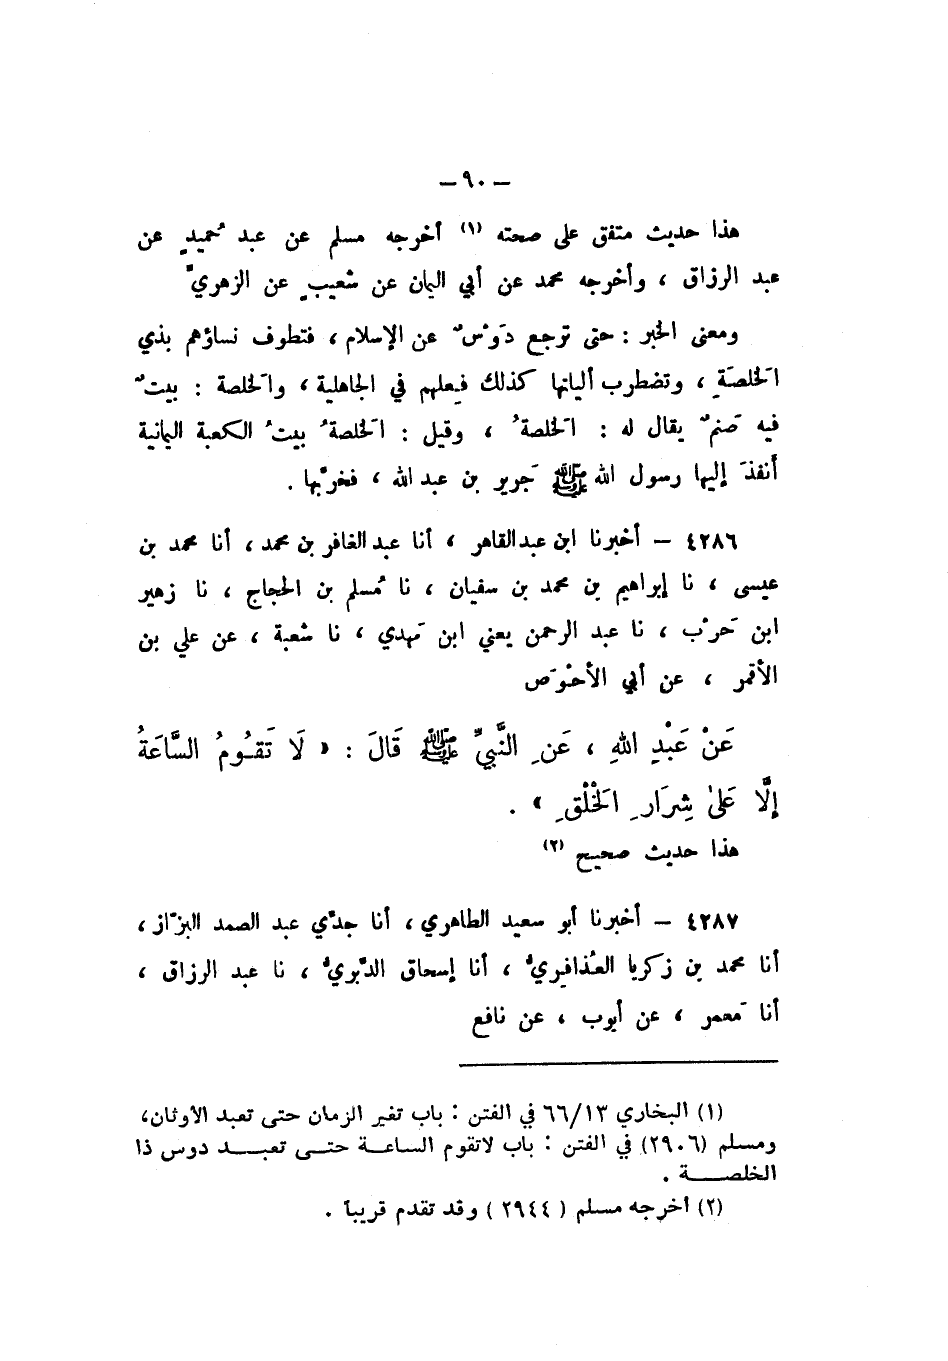 – ٩٠ –
هذا حديث متفق على صحته (١) أخرجه مسلم عن عبد حُميدٍ عن
عبد الرزاق ، وأخرجه محمد عن أبي اليمان عن شعيبٍ عن الزهريِّ
ومعنى الخبر : حتى ترجع دَوْسٌ عن الإسلام ، فتطوف نساؤهم بذي
الخَلصَةِ ، وتضطرب ألياتها كذلك فِعلهم في الجاهلية ، والخَلصة : بيتٌ
فيه صَنمٌ يقال له : الخَلصةُ ، وقيل : الخَلصةُ بيتُ الكعبة اليمانية
أنفذَ إليها رسول الله ﷺ جَرير بن عبد الله ، فخرَّبها .
٤٢٨٦ – أخبرنا ابن عبدالقاهر ، أنا عبد الغافر بن محمد ، أنا محمد بن
عيسى ، نا إبراهيم بن محمد بن سفيان ، نا مُسلم بن الحجاج ، نا زهير
ابن حَرْب ، نا عبد الرحمن يعني ابن مَهدي ، نا شعبة ، عن علي بن
الأقمر ، عن أبي الأحْوَص
عَنْ عَبْدِ اللهِ ، عَنِ النَّبيِّ ﷺ قَالَ : « لَا تَقُومُ السَّاعَةُ
إلَّا عَلىٰ شِرَارِ الخَلْقِ » .
هذا حديث صحيح (٢)
٤٢٨٧ – أخبرنا أبو سعيد الطاهري ، أنا جدِّي عبد الصمد البزَّاز ،
أنا محمد بن زكريا العُذافِريُّ ، أنا إسحاق الدَّبَريُّ ، نا عبد الرزاق ،
أنا مَعمر ، عن أيوب ، عن نافع
(١) البخاري ٦٦/١٣ في الفتن : باب تغير الزمان حتى تعبد الأوثان،
ومسلم (٢٩٠٦) في الفتن : باب لاتقوم الساعة حتى تعبد دوس ذا
الخلصة .
(٢) أخرجه مسلم ( ٢٩٤٤ ) وقد تقدم قريباً .